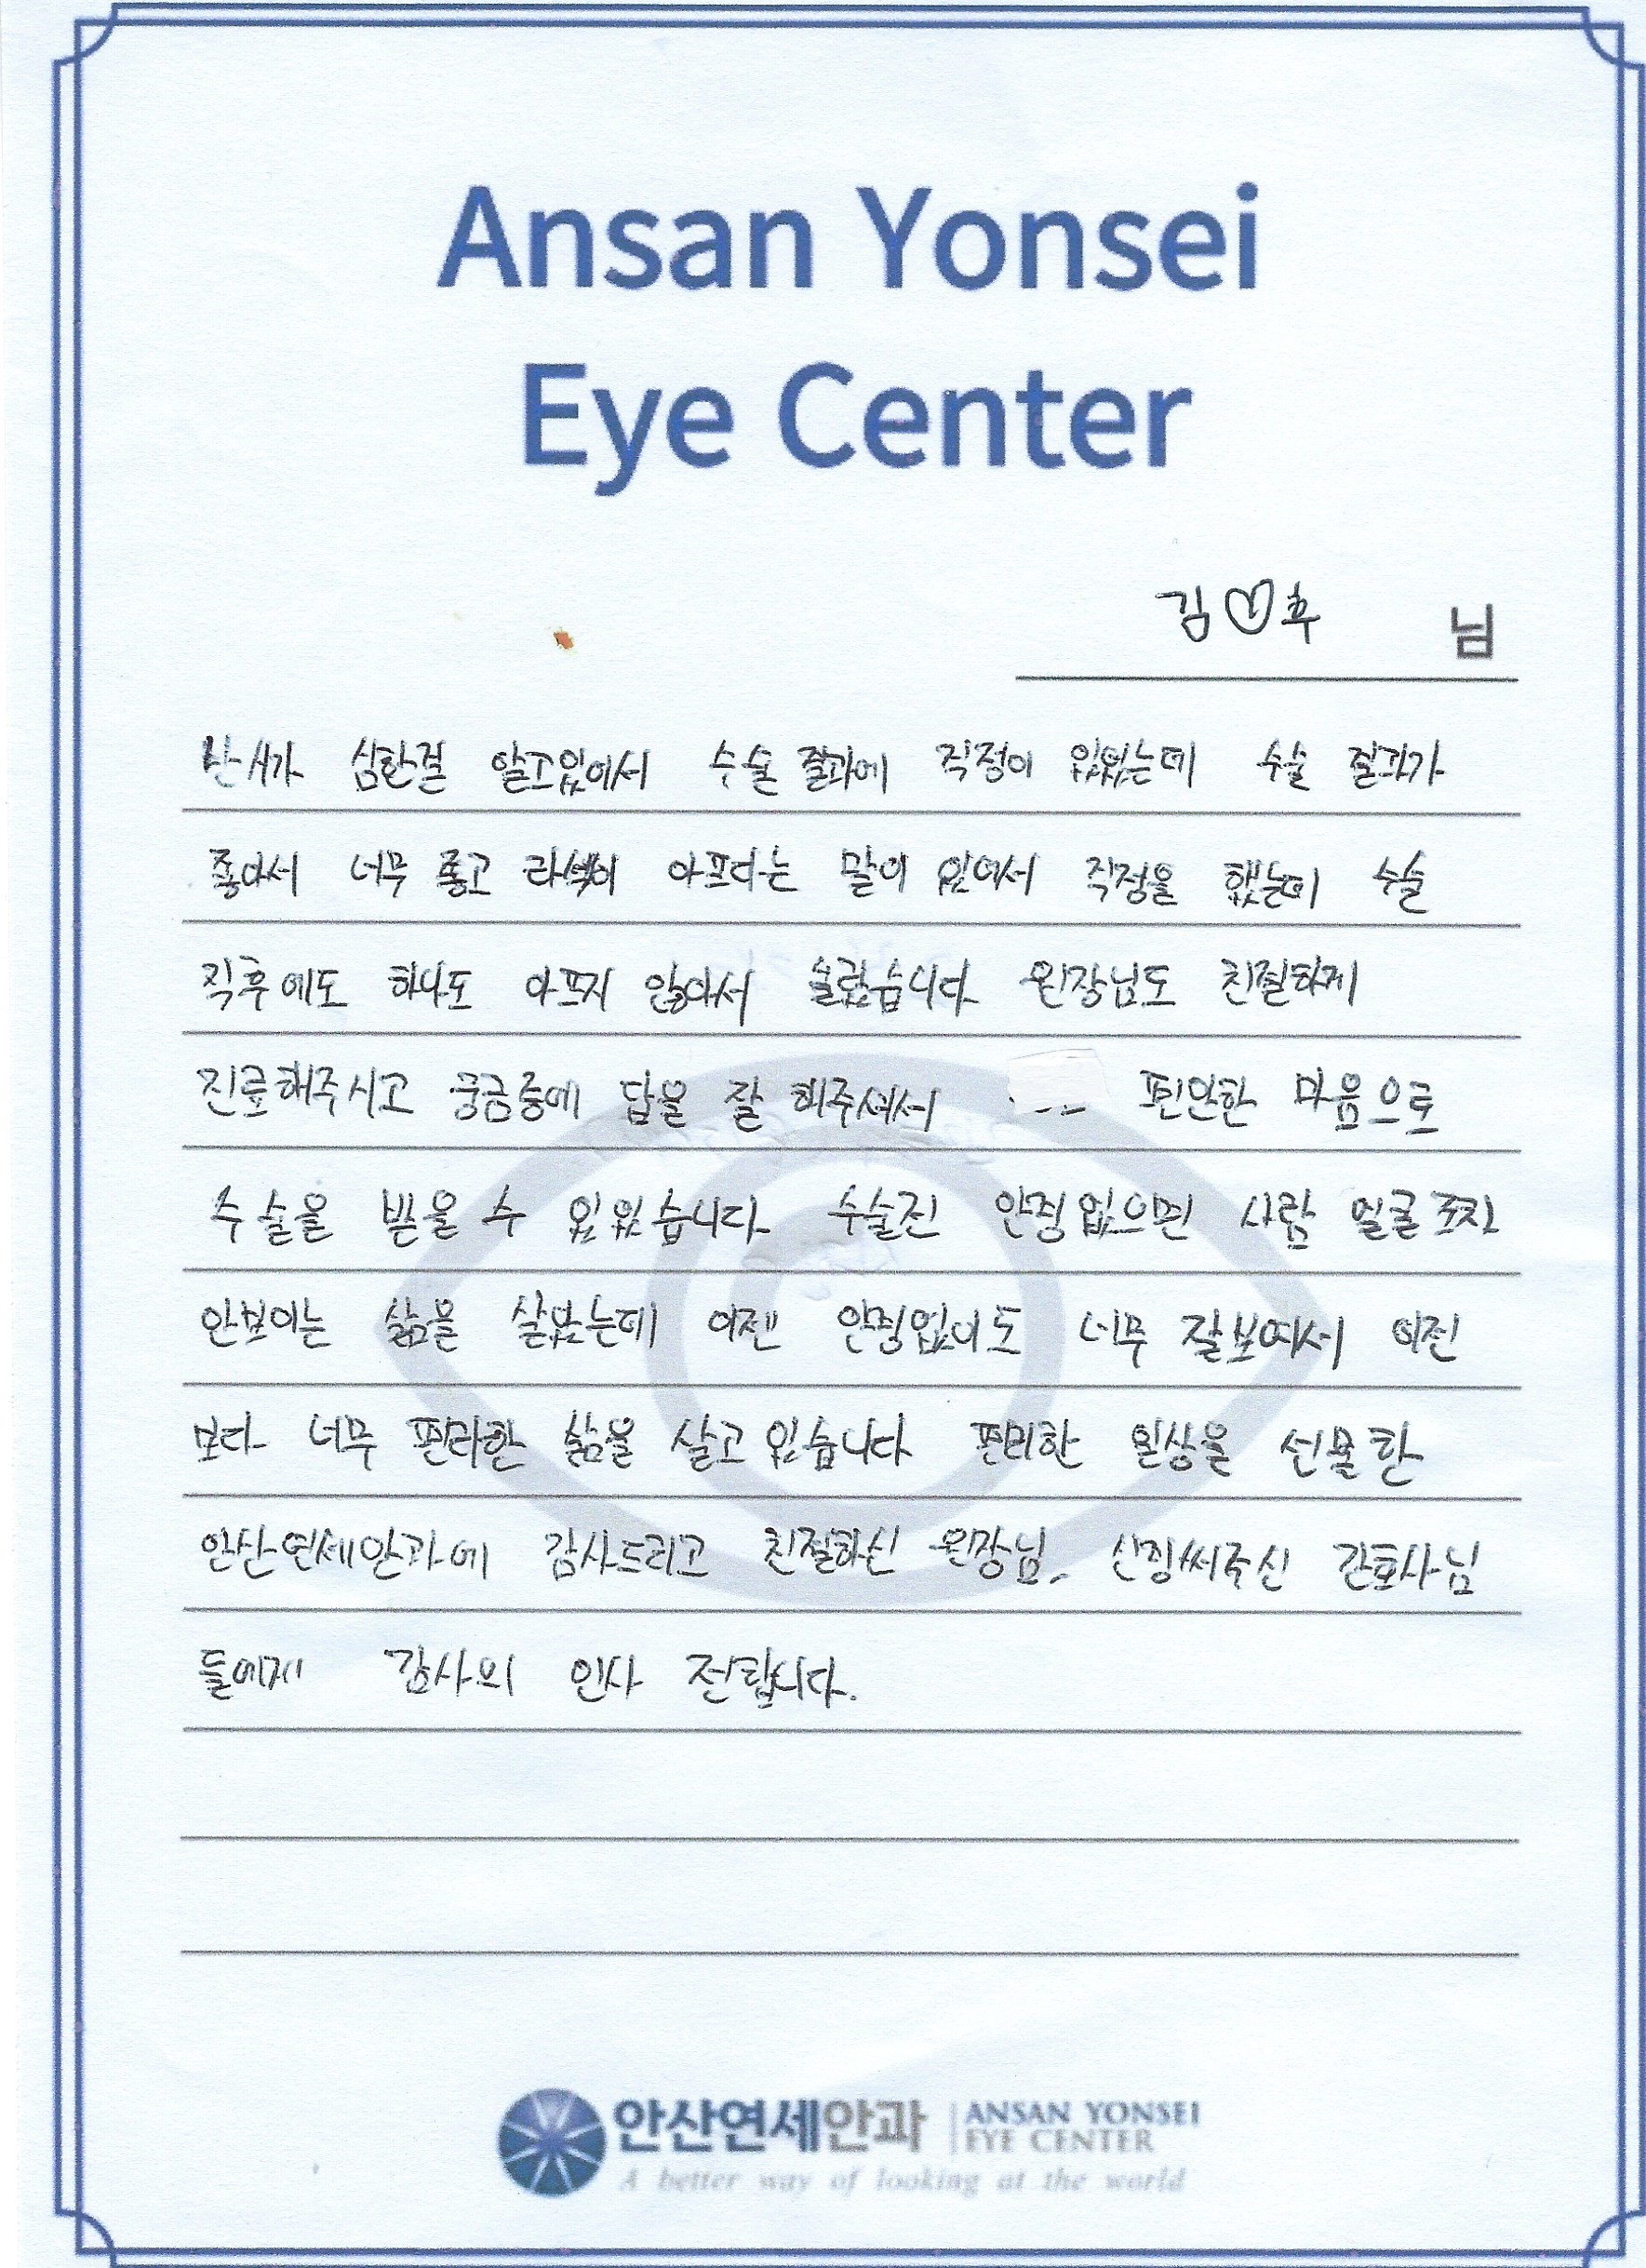 Ansan Yonsei
Eye Center
김♡후 님
난시가 심한걸 알고있어서 수술 결과에 걱정이 있었는데 수술 결과가
좋아서 너무 좋고 라섹이 아프다는 말이 있어서 걱정을 했는데 수술
직후에도 하나도 아프지 않아서 놀랐습니다 원장님도 친절하게
진료해주시고 궁금증에 답을 잘 해주셔서 편안한 마음으로
수술을 받을 수 있었습니다 수술전 안경없으면 사람 얼굴조차
안보이는 삶을 살았는데 이젠 안경없이도 너무 잘보여서 이전
보다 너무 편리한 삶을 살고있습니다 편리한 일상을 선물한
안산연세안과에 감사드리고 친절하신 원장님, 신경써주신 간호사님
들에게 감사의 인사 전합니다.
안산연세안과 ANSAN YONSEI
EYE CENTER
A better way of looking at the world